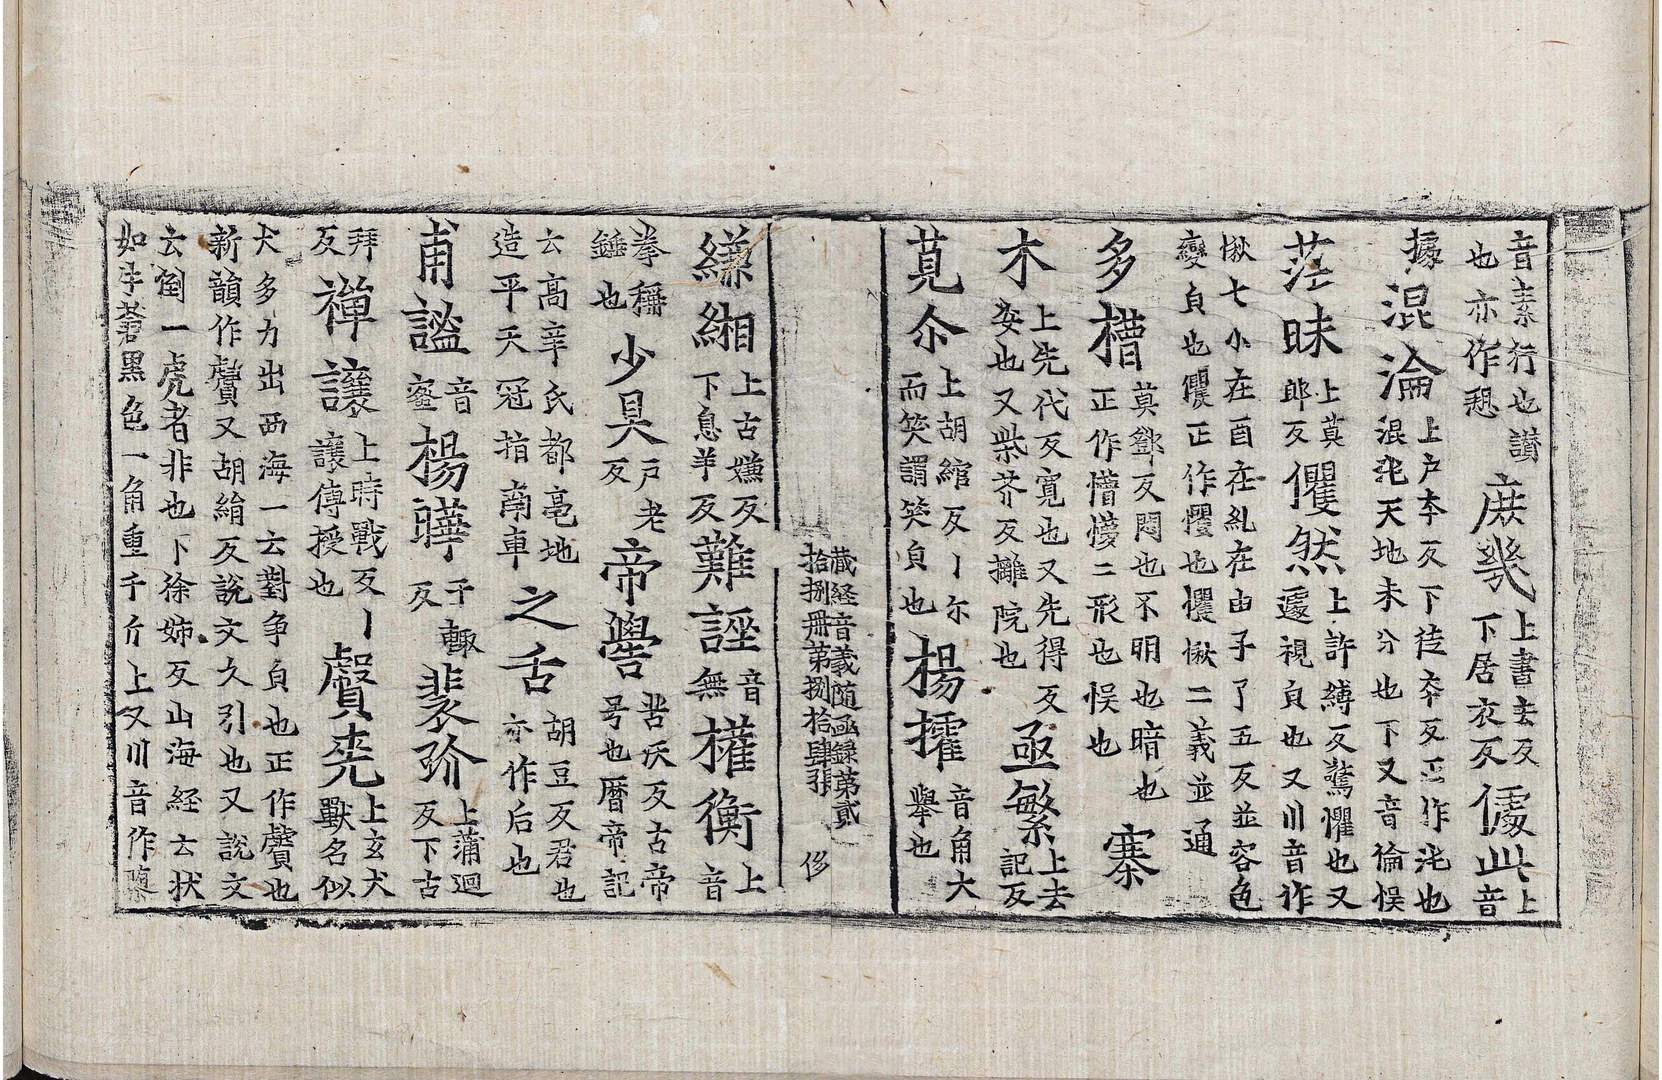 音素行也讃
也亦作愬
庶幾
上書去反
下居衣反
此
上
音
據
混淪
上户夲反下徒夲反正作沌也
混沌天地未分也下又音倫悮
茫昧
上莫
郎反
戄然
上許縛反驚懼也又
遽視皃也又川音作
愀七小在酉在糺在由子了五反並容色
變皃也戄正作戄也戄愀二義並通
多
莫鄧反悶也不明也暗也
正作懵懜二形也悮也
寨
木
上先代反寔也又先得反
姿也又柴芥反攡院也
亟繁
上去
記反
莧尒
上胡綰反丨尓
而笑謂笑皃也
楊㩁
音角大
舉也
藏経音義随函録第貳
拾捌册第捌拾肆張
侈
縑緗
上古嫌反
下息羊反
難誣
音
無
權衡
上
音
拳稱
錘也
少昊
户老
反
帝嚳
苦沃反古帝
号也曆帝記
云高辛氏都亳地
造平天冠指南車
之舌
胡豆反君也
亦作后也
甫謐
音
蜜
楊曄
于輙
反
裴玢
上蒲迴
反下古
拜
反
禅讓
上時戰反丨
讓傳授也
贙尭
上玄犬
獸名似
犬多力出西海一云對争皃也正作贙也
新韻作贙又胡絹反說文久引也又說文
云一虎者非也下徐姊反山海経云状
如牛蒼黒色一角重千斤上又川音作